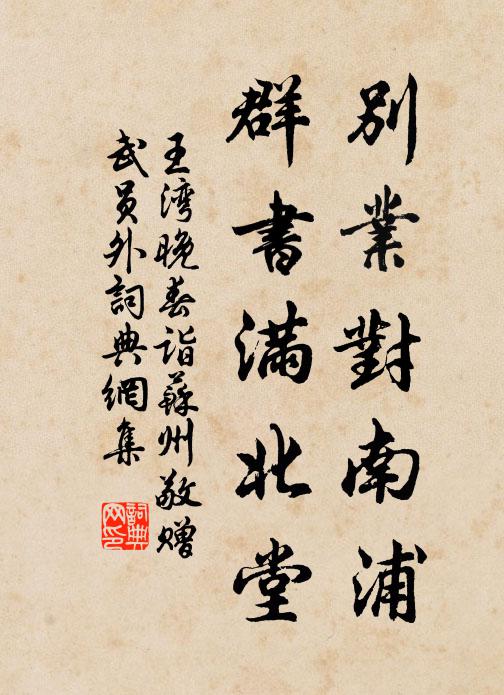 別業對南浦
群書滿北堂
王湾晚春詣蘇州敬赠
武員外詞典網集
詞典
网印